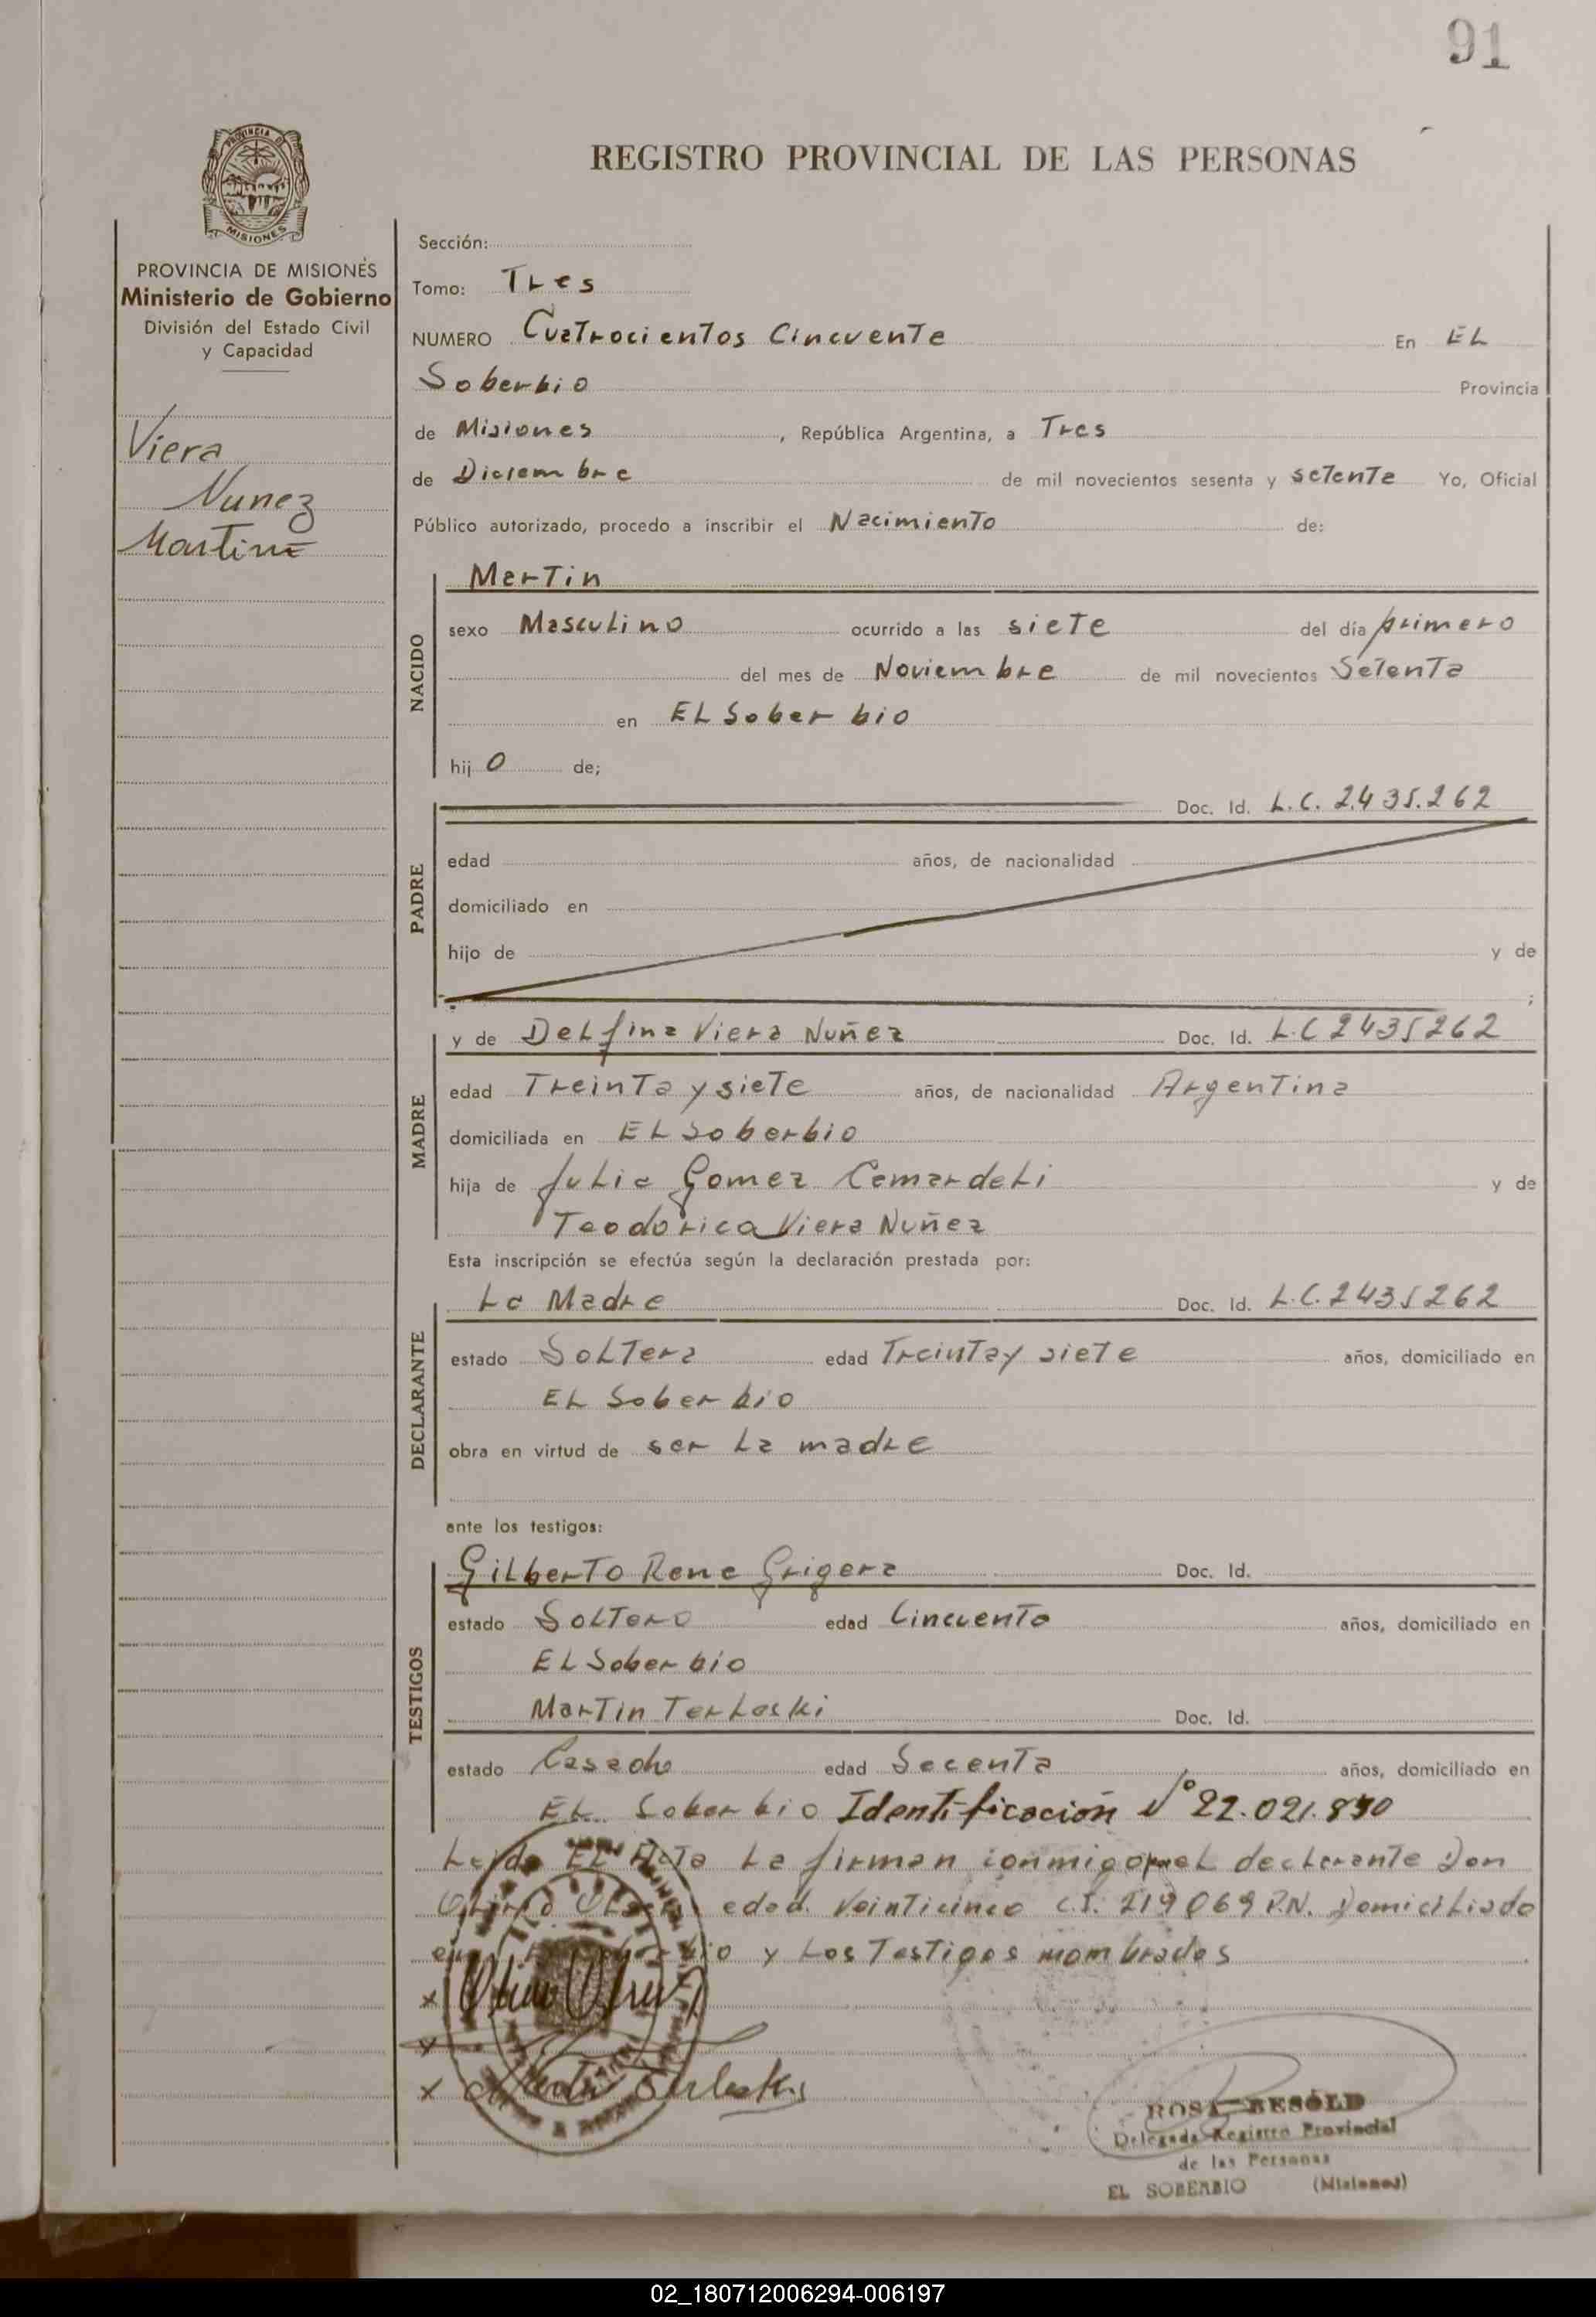 91
PROVINCIA DE
MISIONES
REGISTRO PROVINCIAL DE LAS PERSONAS
PROVINCIA DE MISIONES
Ministerio de Gobierno
División del Estado Civil
y Capacidad
Viera
Nunez
Martin
Sección:
Tomo: Tres
NUMERO Cuatrocientos Cincuenta En EL
Soberbio Provincia
de Misiones, República Argentina, a Tres
de Diciembre de mil novecientos sesenta y setenta Yo, Oficial
Público autorizado, procedo a inscribir el Nacimiento de:
NACIDO
Martin
sexo Masculino ocurrido a las siete del día primero
del mes de Noviembre de mil novecientos Setenta
en EL Soberbio
hij o de;
PADRE
Doc. Id. L.C. 2.435.262
edad años, de nacionalidad
domiciliado en
hijo de y de
;
MADRE
y de Delfina Viera Nuñez Doc. Id. L.C 2435262
edad Treinta y siete años, de nacionalidad Argentina
domiciliada en EL Soberbio
hija de Julio Gomez Camardeli y de
Teodorica Viera Nuñez
Esta inscripción se efectúa según la declaración prestada por:
DECLARANTE
La Madre Doc. Id. L.C. 2435262
estado Soltera edad Treinta y siete años, domiciliado en
EL Soberbio
obra en virtud de ser La madre
ante los testigos:
TESTIGOS
Gilberto Rene Grigera Doc. Id.
estado Soltero edad Cincuenta años, domiciliado en
EL Soberbio
Martin Terloski Doc. Id.
estado Casado edad Secenta años, domiciliado en
EL Soberbio Identificación Nº 22.021.890
Leida EL Acta La firman conmigo el declarante Don
edad Veinticinco C.I. 219069 P.N. Domiciliado
en EL Soberbio y Los Testigos mombrados
x
x
x Martin Terloski
ROSA BESOLD
Delegada Registro Provincial
de las Personas
EL SOBERBIO (Misiones)
02_180712006294-006197